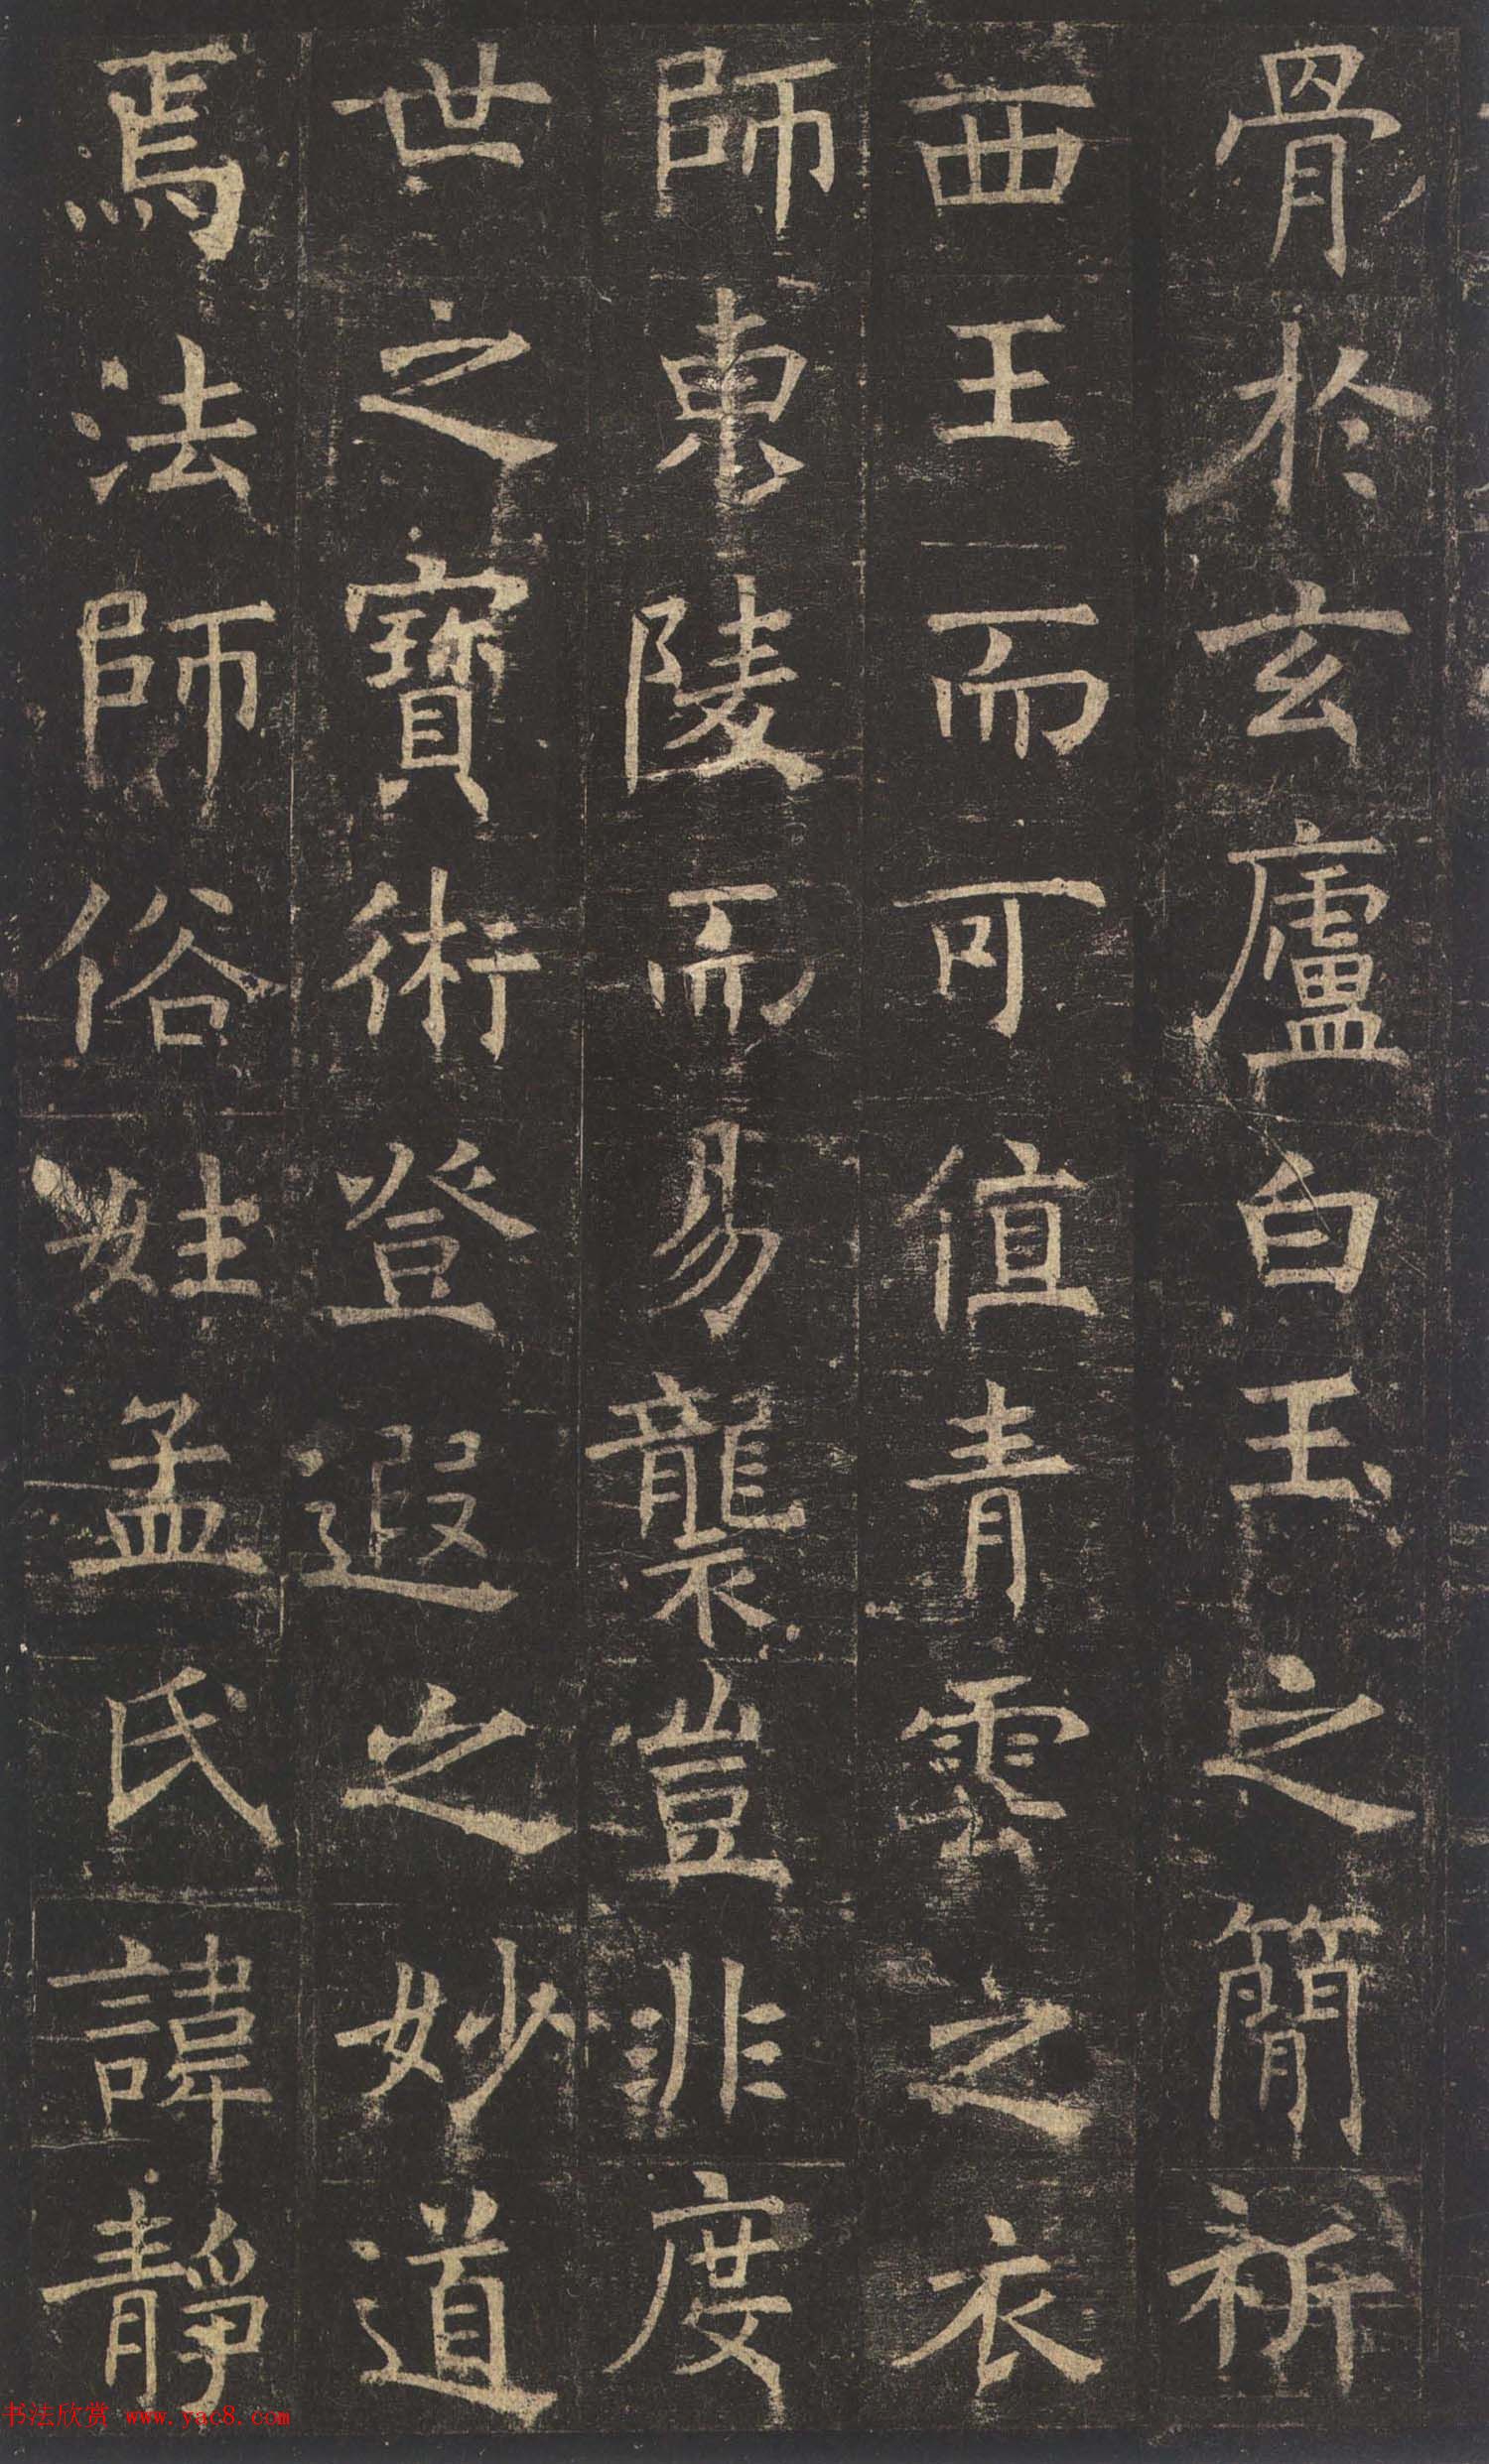 骨於玄廬白玉之簡祈
西王而可值青雲之衣
師東陵而易襲豈非度
世之寶術登遐之妙道
焉法師俗姓孟氏諱靜
书法欣赏 www.yac8.com